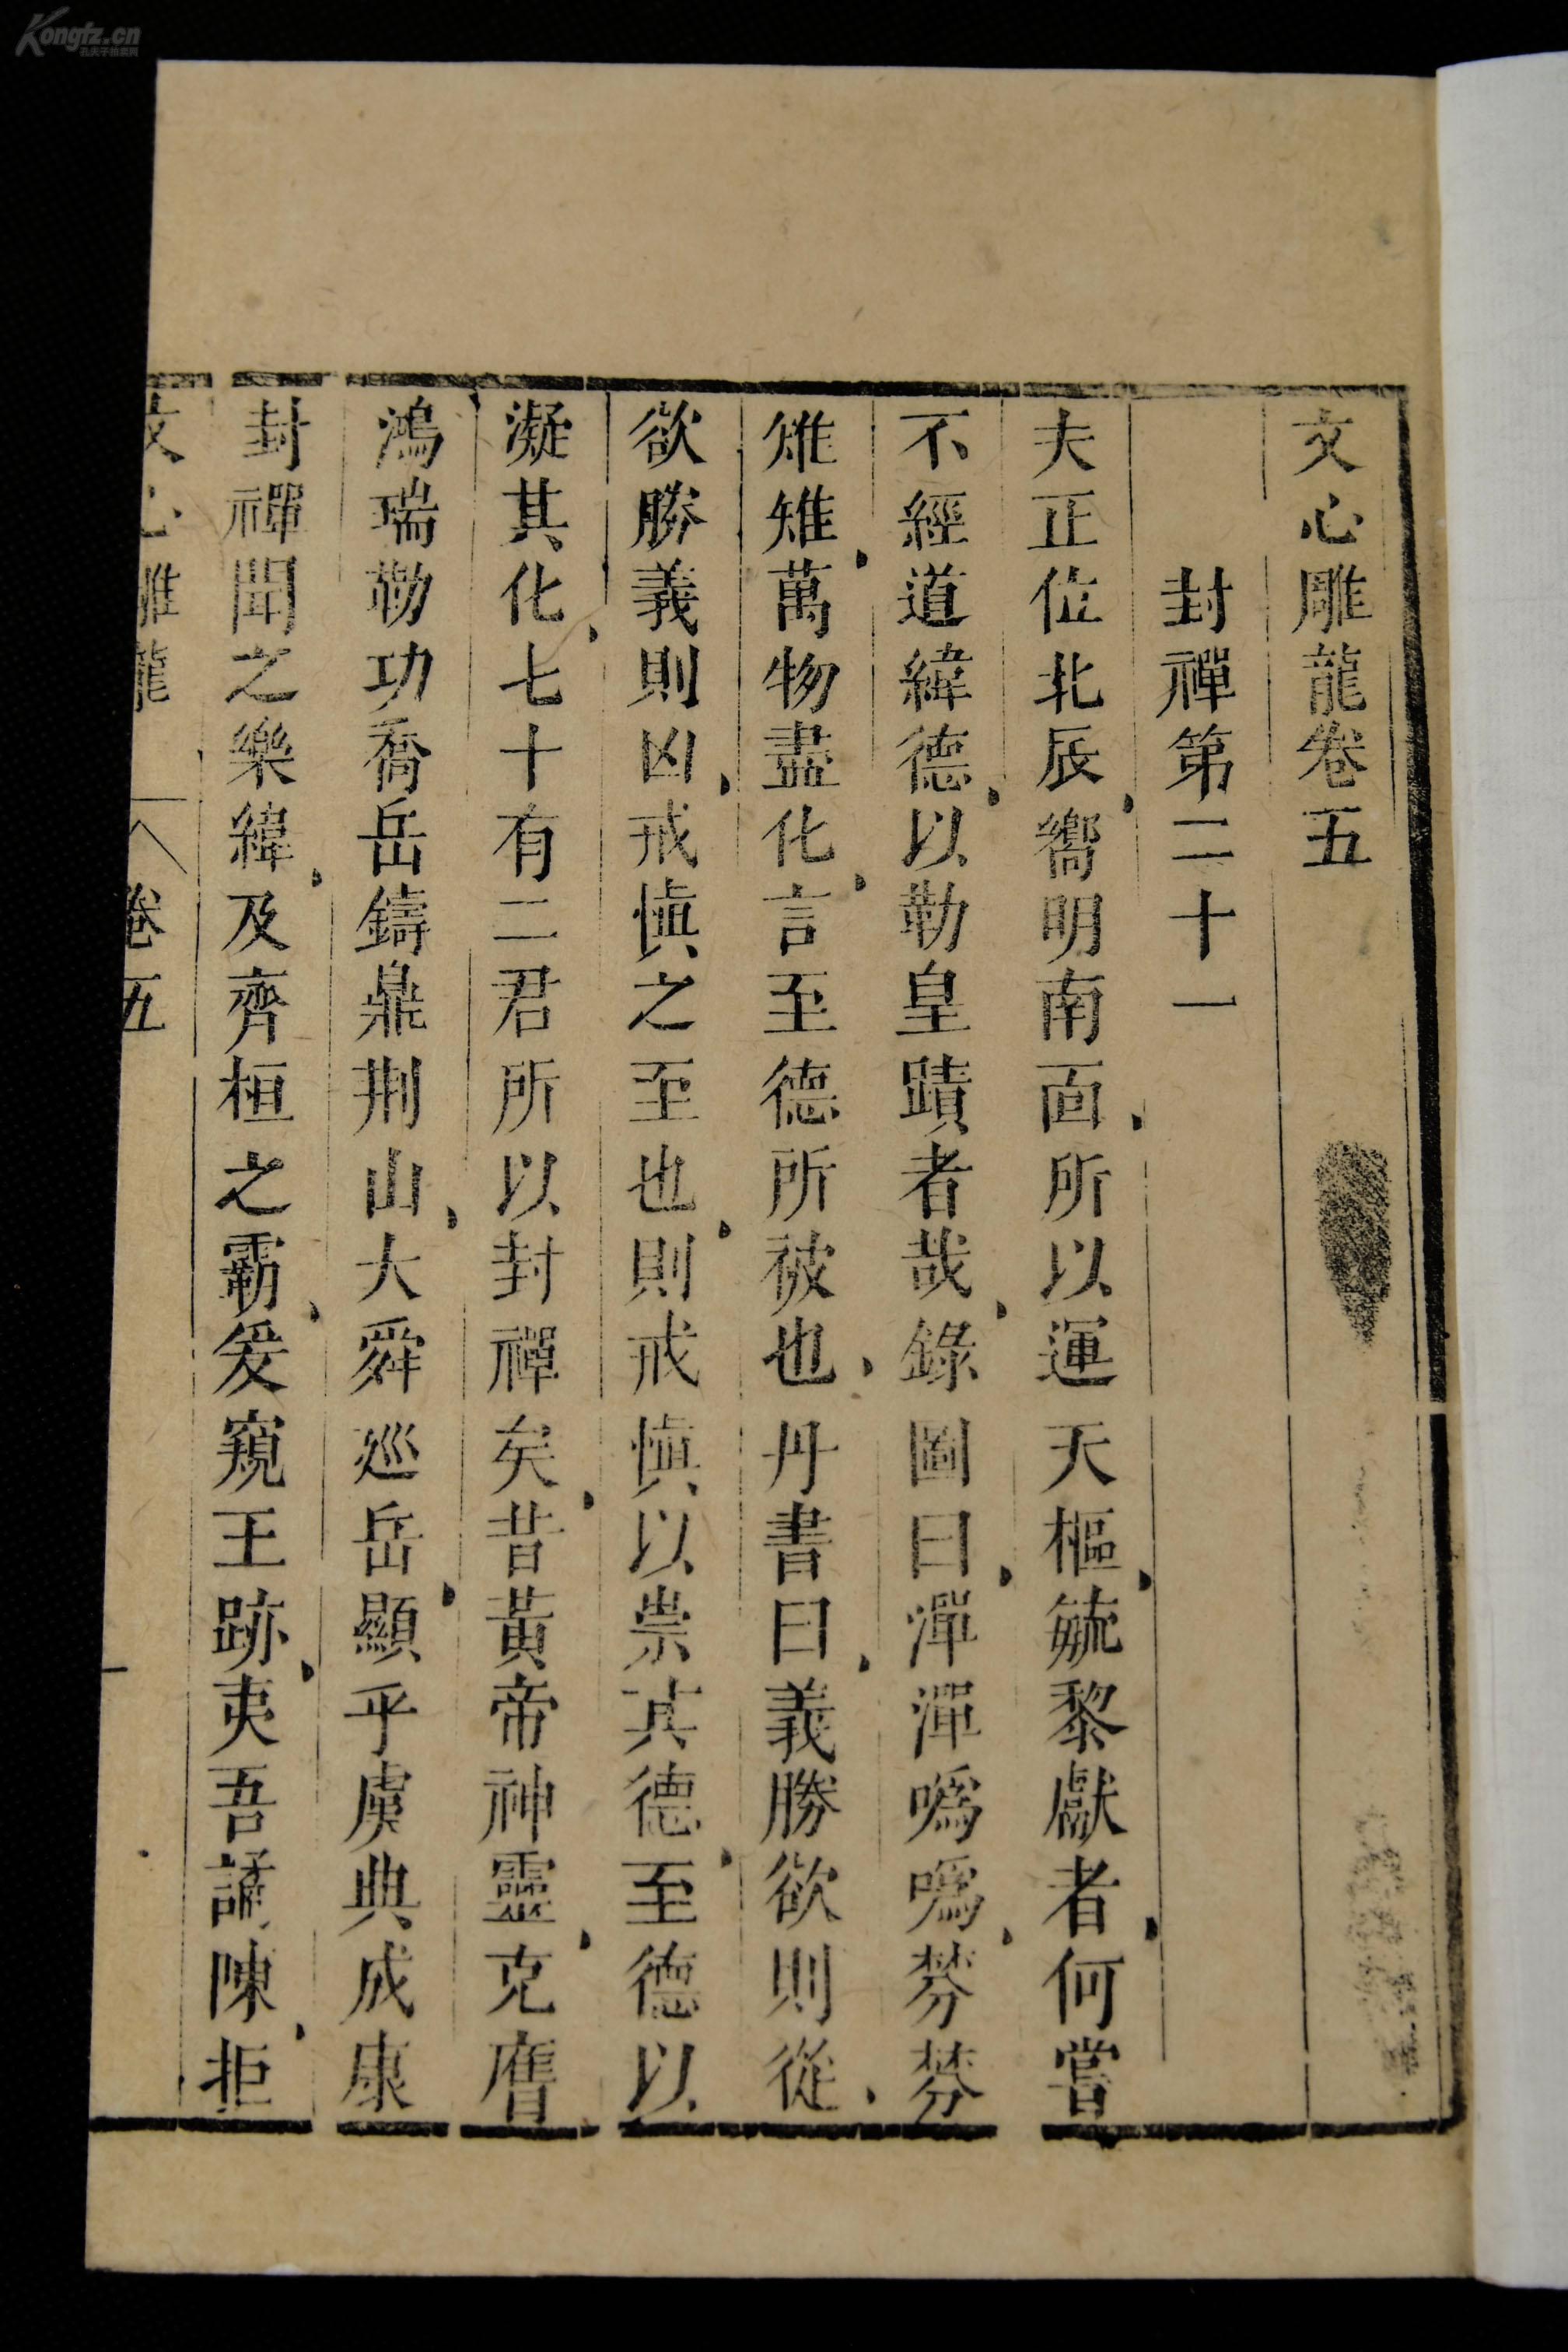 文心雕龍卷五
封禪第二十一
夫正位北辰嚮明南面所以運天樞毓黎獻者何嘗
不經道緯德以勒皇蹟者哉錄圖曰潬潬噅噅棼棼
雉雉萬物盡化言至德所被也丹書曰義勝欲則從
欲勝義則凶戒慎之至也則戒慎以崇其德至德以
凝其化七十有二君所以封禪矣昔黃帝神靈克膺
鴻瑞勒功喬岳鑄鼎荆山大舜巡岳顯乎虞典成康
封禪聞之樂緯及齊桓之霸爰窺王跡夷吾譎陳拒
文心雕龍 卷五 一
Kongfz.cn
孔夫子拍卖网